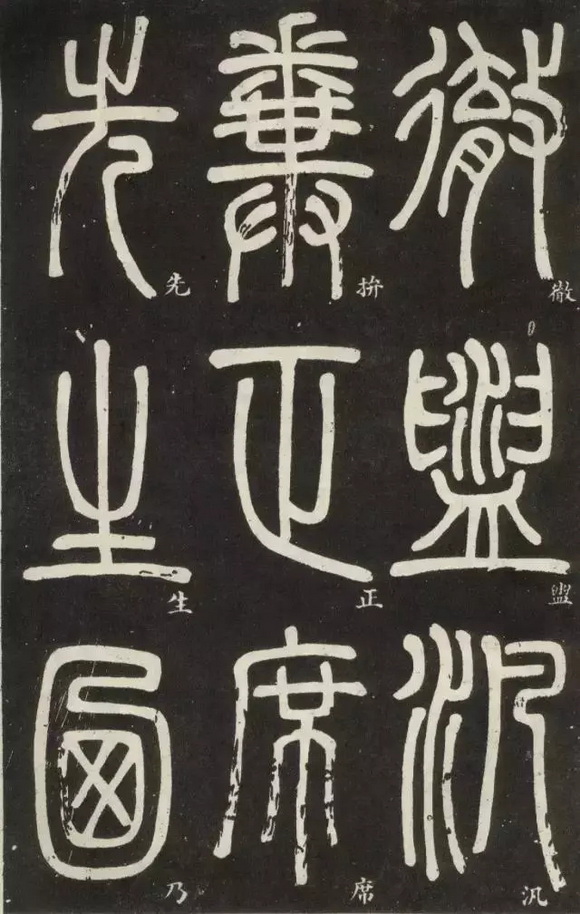 徹盥汎
拚正席
先生乃